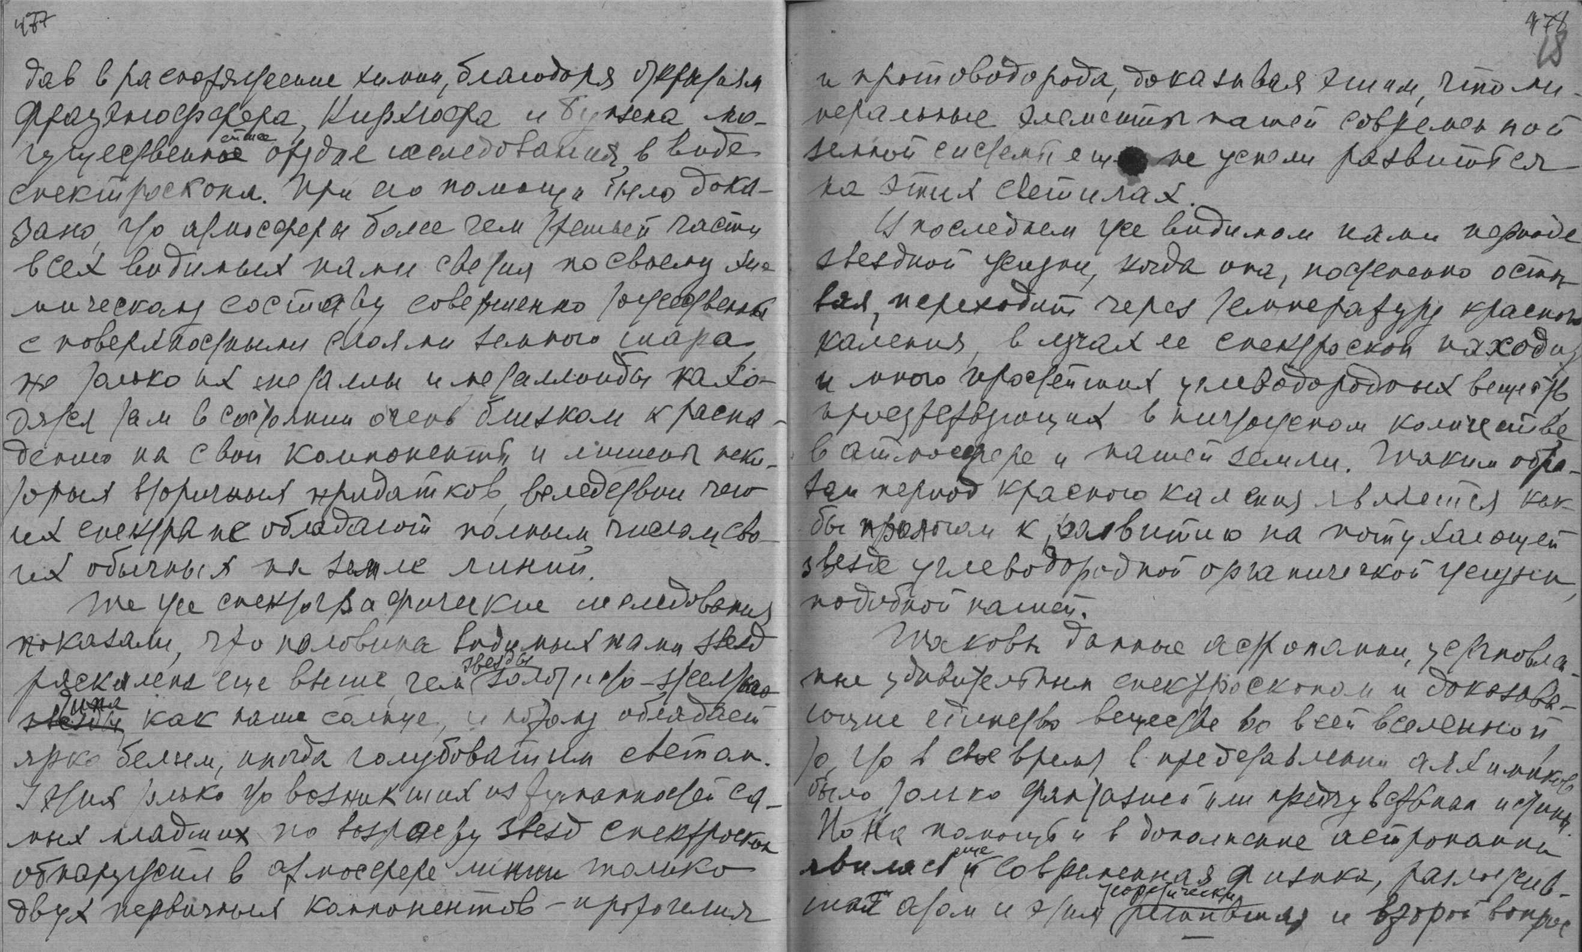 477
дав в распоряжение химии, благодаря открытиям
Фраунгофера, Кирхгофа и Бунзена мо-
гущественное орудие исследования, в виде
спектроскопа. При его помощи было дока-
зано, что атмосферы более чем третьей части
всех видимых нами светил по своему хи-
мическому составу совершенно тожественны
с поверхностными слоями земного шара,
но только их металлы и металлоиды нахо-
дятся там в состоянии очень близком к распа-
дению на свои компоненты и лишены неко-
торых вторичных придатков, вследствии чего
их спектра не обладают полным числом сво-
их обычных на земле линий.
Те же спектографические исследования
показали, что половина видимых нами звезд
раскалена еще выше, чем звезды золотисто-желтого
типа, как наше солнце, и потому обладает
ярко белым, иногда голубоватым светом.
У этих только что возникших из туманностей са-
мых младших по возрасту звезд спектроскоп
обнаружил в атмосфере линии только
двух первичных компонентов – протогелия
478
18
и протоводорода, доказывая этим, что ми-
неральные элементы нашей современной
земной системы еще не успели развиться
на этих светилах.
И последнем уже видимом нами периоде
звездной жизни, когда она, постепенно осты-
вая, переходит через температуру красного
каления, в лучах ее спектроскоп находит
и много простейших углеводородных веществ
присутствующих в ничтожном количестве
в атмосфере и нашей земли. Таким обра-
зом период красного каления является как
бы прологом к развитию на потухающей
звезде углеводородной органической жизни,
подобной нашей.
Таковы данные астрономии, установле-
ные удивительным спектроскопом и доказыва-
ющие единство вещества во всей вселенной
то, что в свое время в представлении алхимиков
было только фантазией или предчувствием истины.
Но на помощь и в дополнение астрономии
явилась еще и современная физика, разложив-
шая атом и этим теоретически решившая и второй вопрос